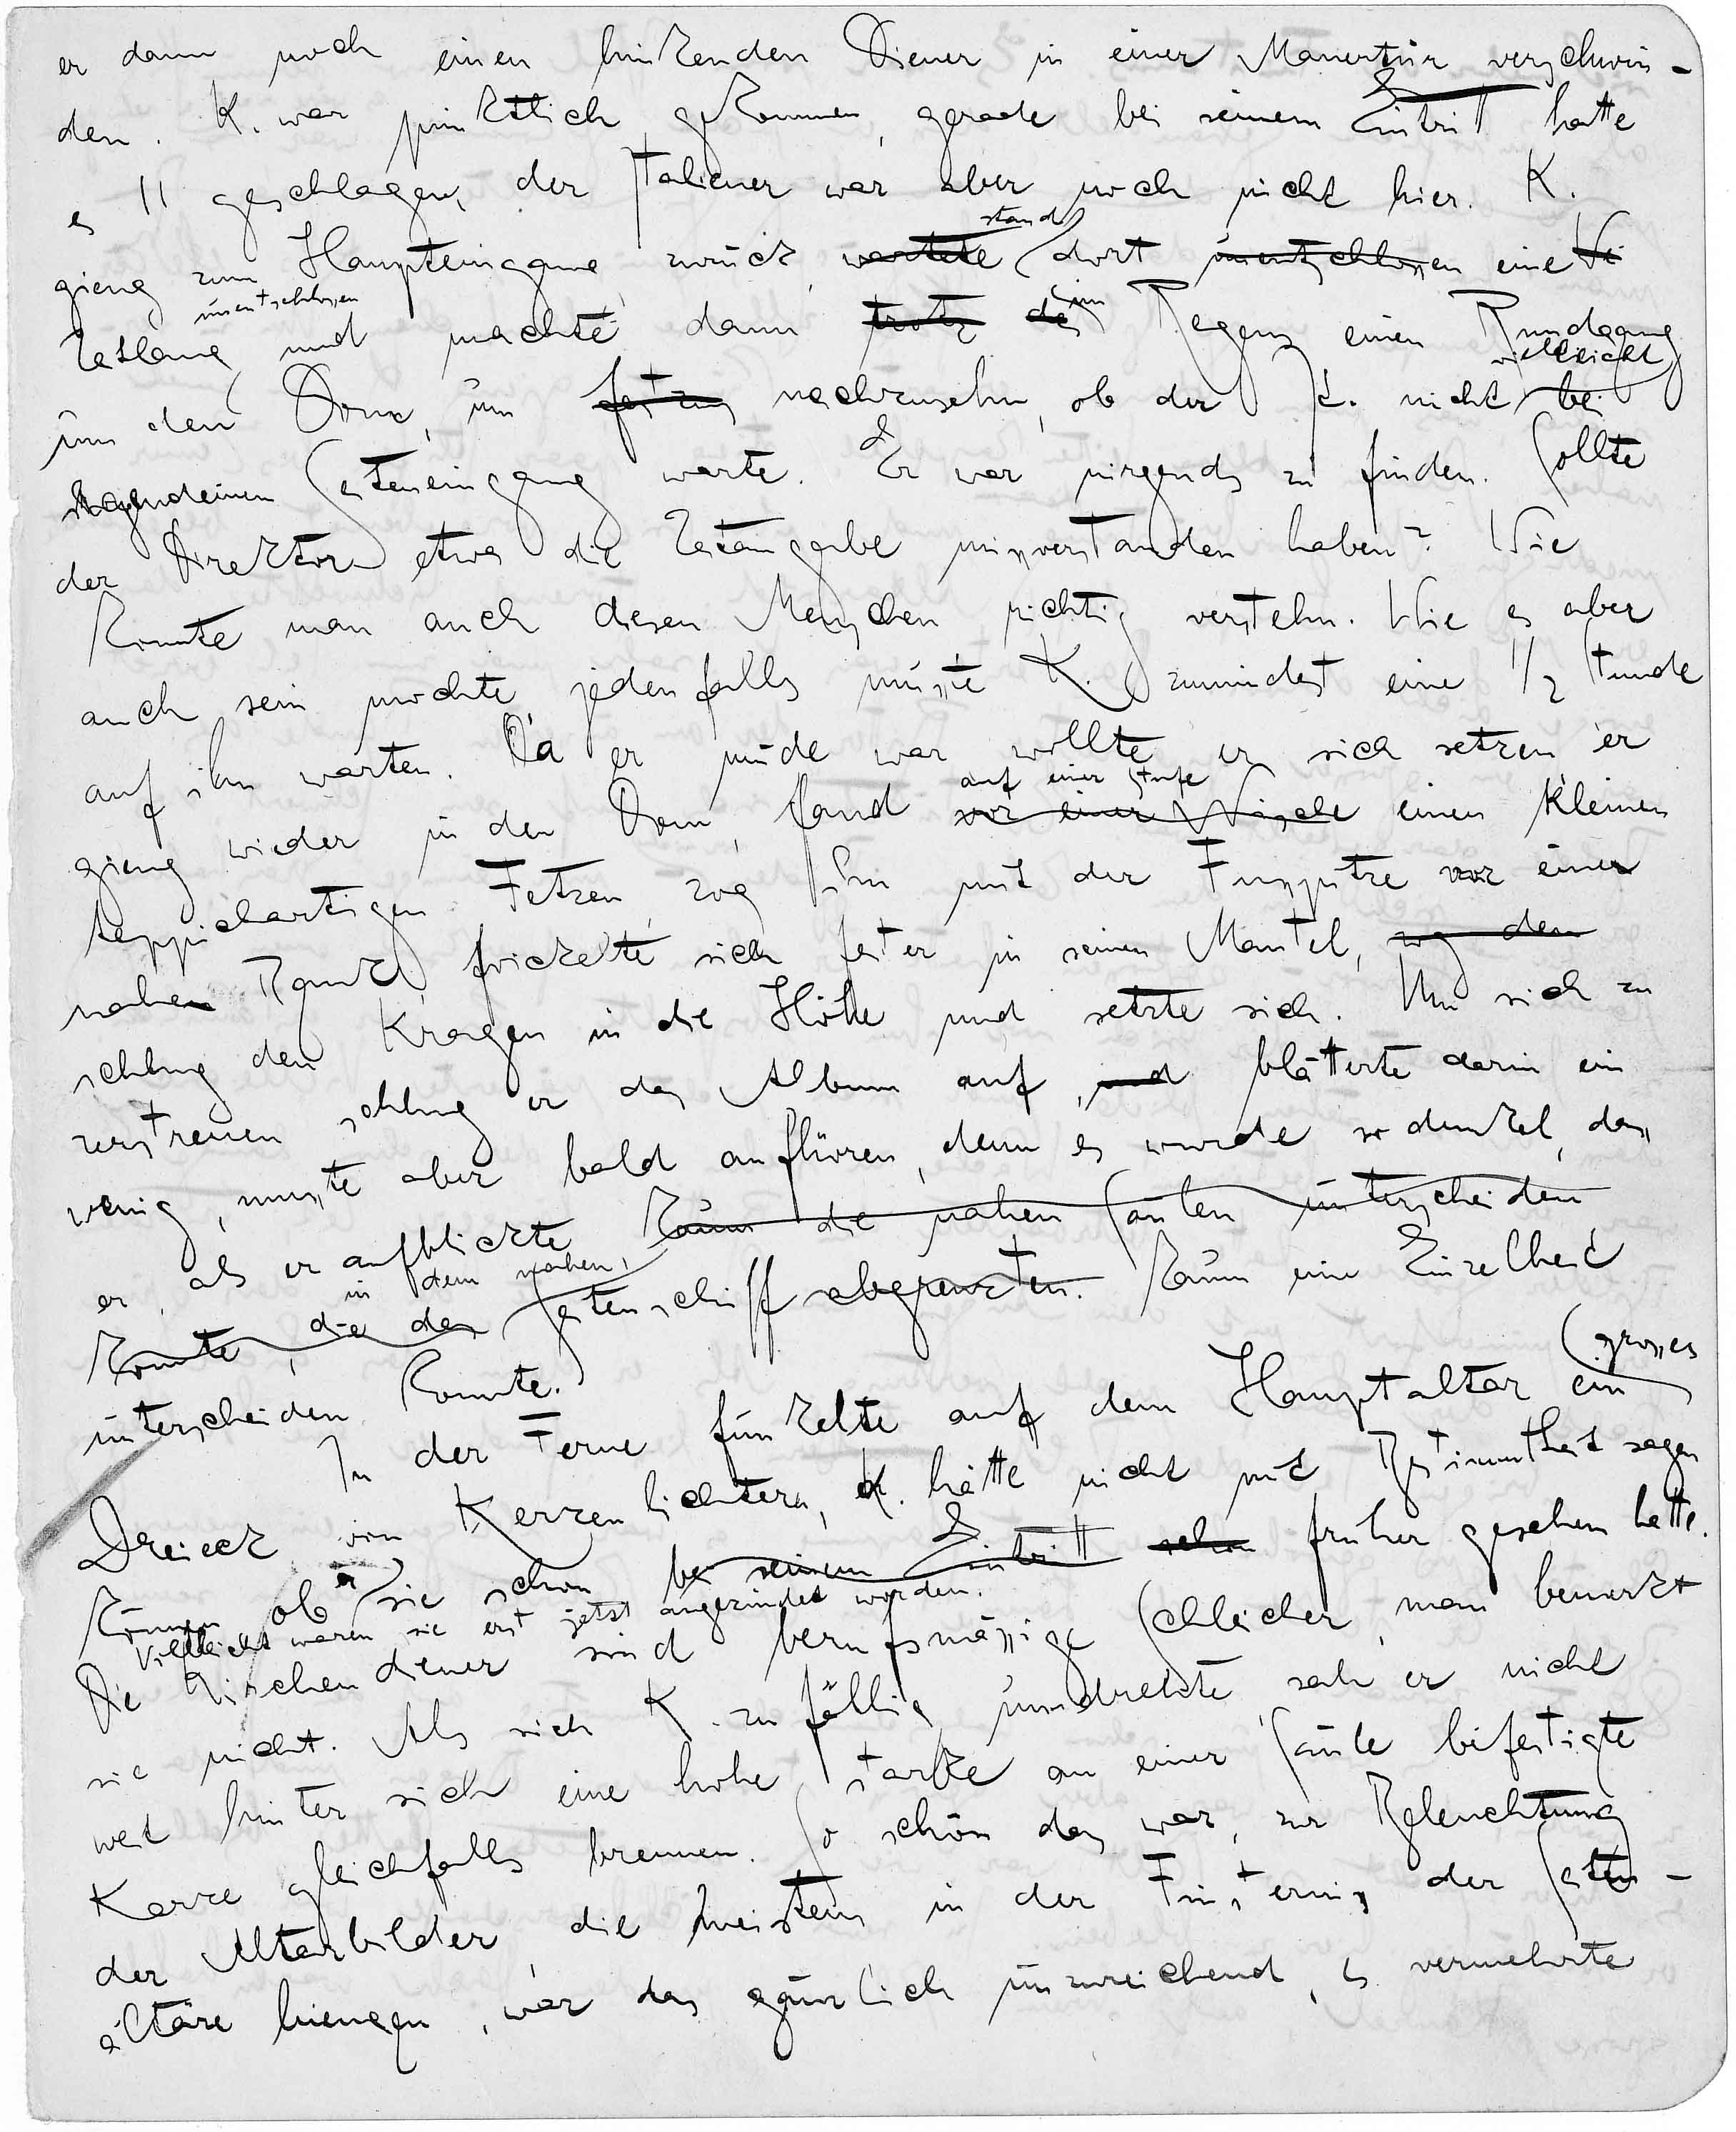 er dann noch einen hinkenden Diener in einer Mauertür verschwin-
den. K. war pünktlich gekommen, gerade bei seinem Eintritt hatte
es 11 geschlagen, der Italiener war aber noch nicht hier. K.
gieng zum Haupteingang zurück, wartete stand dort unentschlossen eine Wei
Zeitlang unentschlossen und machte dann trotz des im Regens einen Rundgang
um den Dom, um nachzusehn, ob der It. nicht vielleicht bei
irgendeinem Seiteneingang warte. Er war nirgends zu finden. Sollte
der Direktor etwa die Zeitangabe missverstanden haben? Wie
konnte man auch diesen Menschen richtig verstehn. Wie es aber
auch sein mochte, jedenfalls musste K. zumindest eine 1/2 Stunde
auf ihn warten. Da er müde war, wollte er sich setzen er
gieng wieder in den Dom, fand auf einer Stufe vor einer Nische einen kleinen
teppichartigen Fetzen, zog ihn mit der Fusspitze vor einer
nahen Bank, wickelte sich fester in seinen Mantel, zog den
schlug den Kragen in die Höhe und setzte sich. Um sich zu
zerstreuen schlug er das Album auf, und blätterte darin ein
wenig, musste aber bald aufhören, denn es wurde so dunkel, dass
er, als er aufblickte kaum die nahen Säulen unterscheiden
konnte, die das in dem nahen Seitenschiff abgrenzten. kaum eine Einzelheit
unterscheiden konnte.
In der Ferne funkelte auf dem Hauptaltar ein grosses
Dreieck von Kerzenlichtern, K. hätte nicht mit Bestimmtheit sagen
können, ob er sie schon bei seinem Eintritt schon früher gesehen hatte.
Vielleicht waren sie erst jetzt angezündet worden.
Die Kirchendiener sind berufsmässige Schleicher, man bemerkt
sie nicht. Als sich K. zufällig umdrehte, sah er nicht
weit hinter sich eine hohe starke an einer Säule befestigte
Kerze gleichfalls brennen. So schön das war, zur Beleuchtung
der Altarbilder, die meistens in der Finsternis der Seiten-
altäre hiengen, war das gänzlich unzureichend, es vermehrte